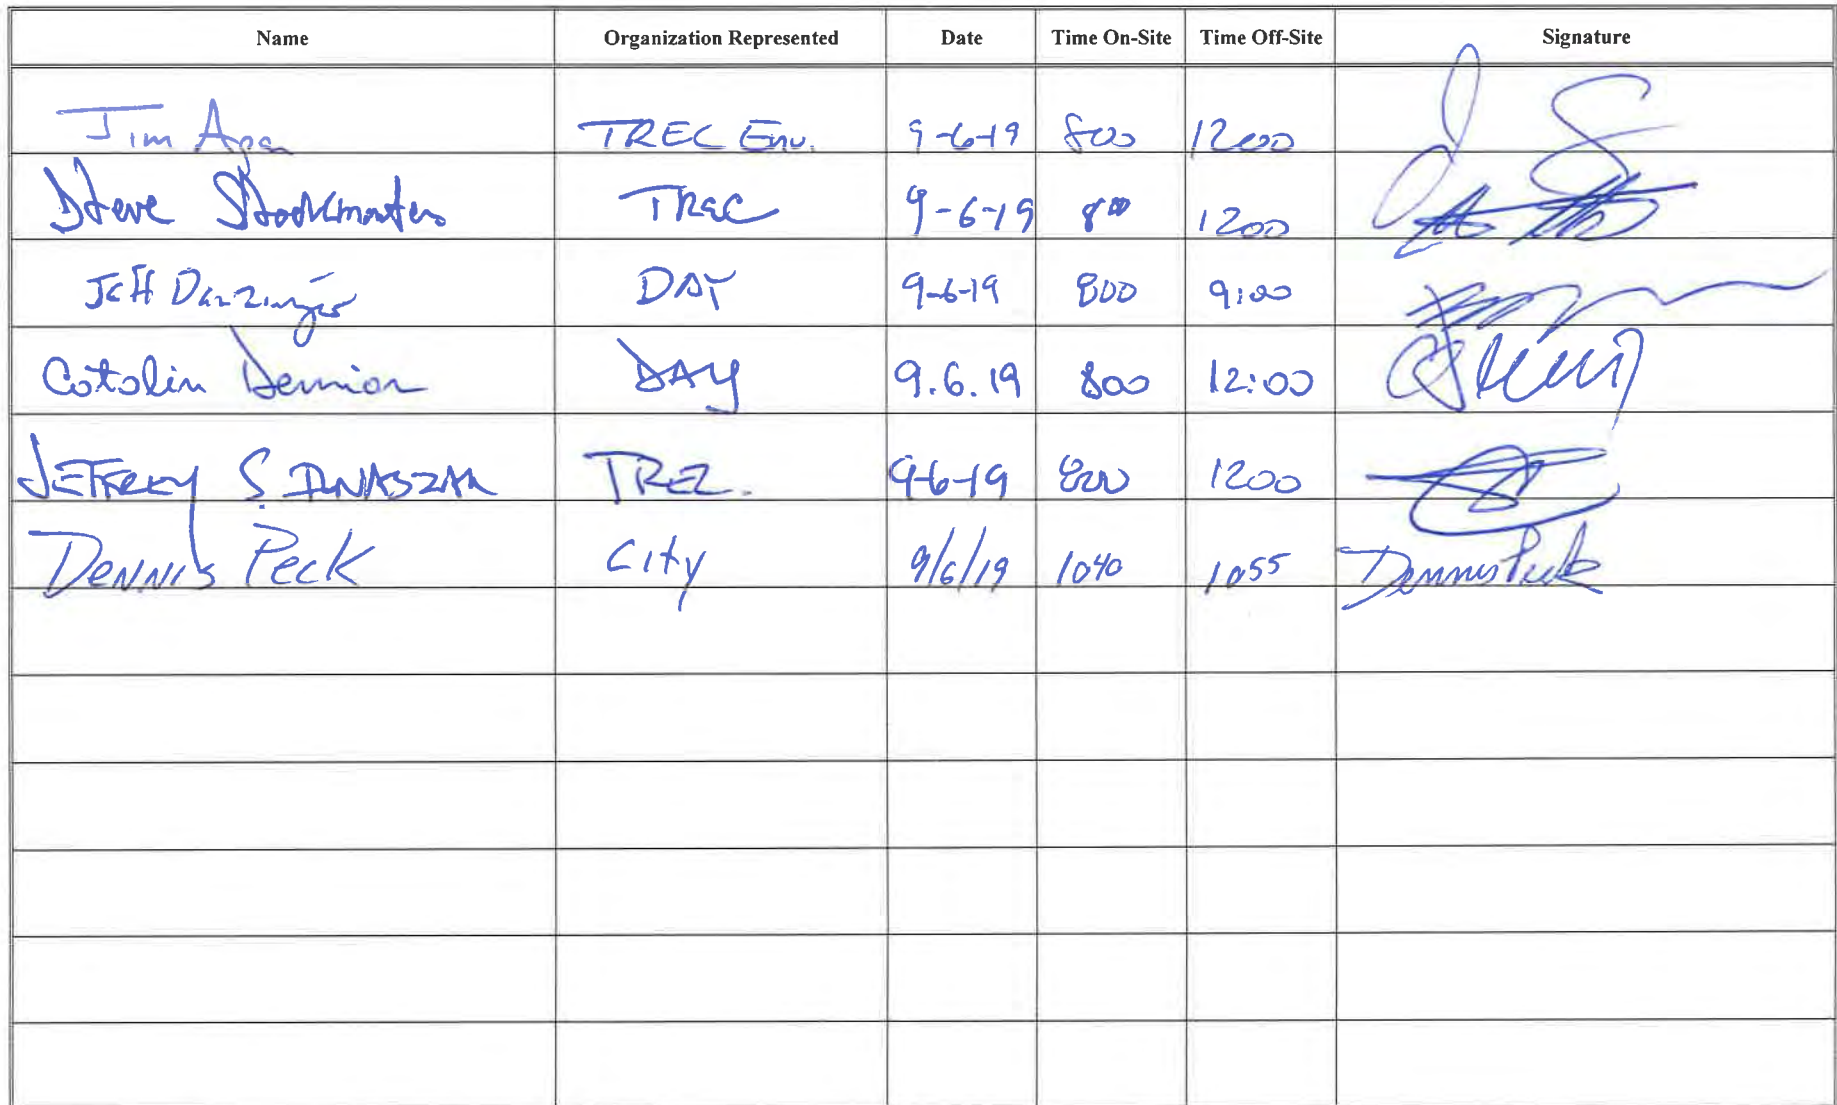 Name Organization Represented Date Time On-Site Time Off-Site Signature
Jim Agar TREC Env. 9-6-19 800 1200
Steve Stockmaster TREC 9-6-19 8⁰⁰ 1200
Jeff Danzinger DAY 9-6-19 800 9:00
Catalin DAY 9.6.19 800 12:00
JEFFREY S. TREC. 9-6-19 800 1200
DENNIS Peck City 9/6/19 1040 1055 Dennis Peck